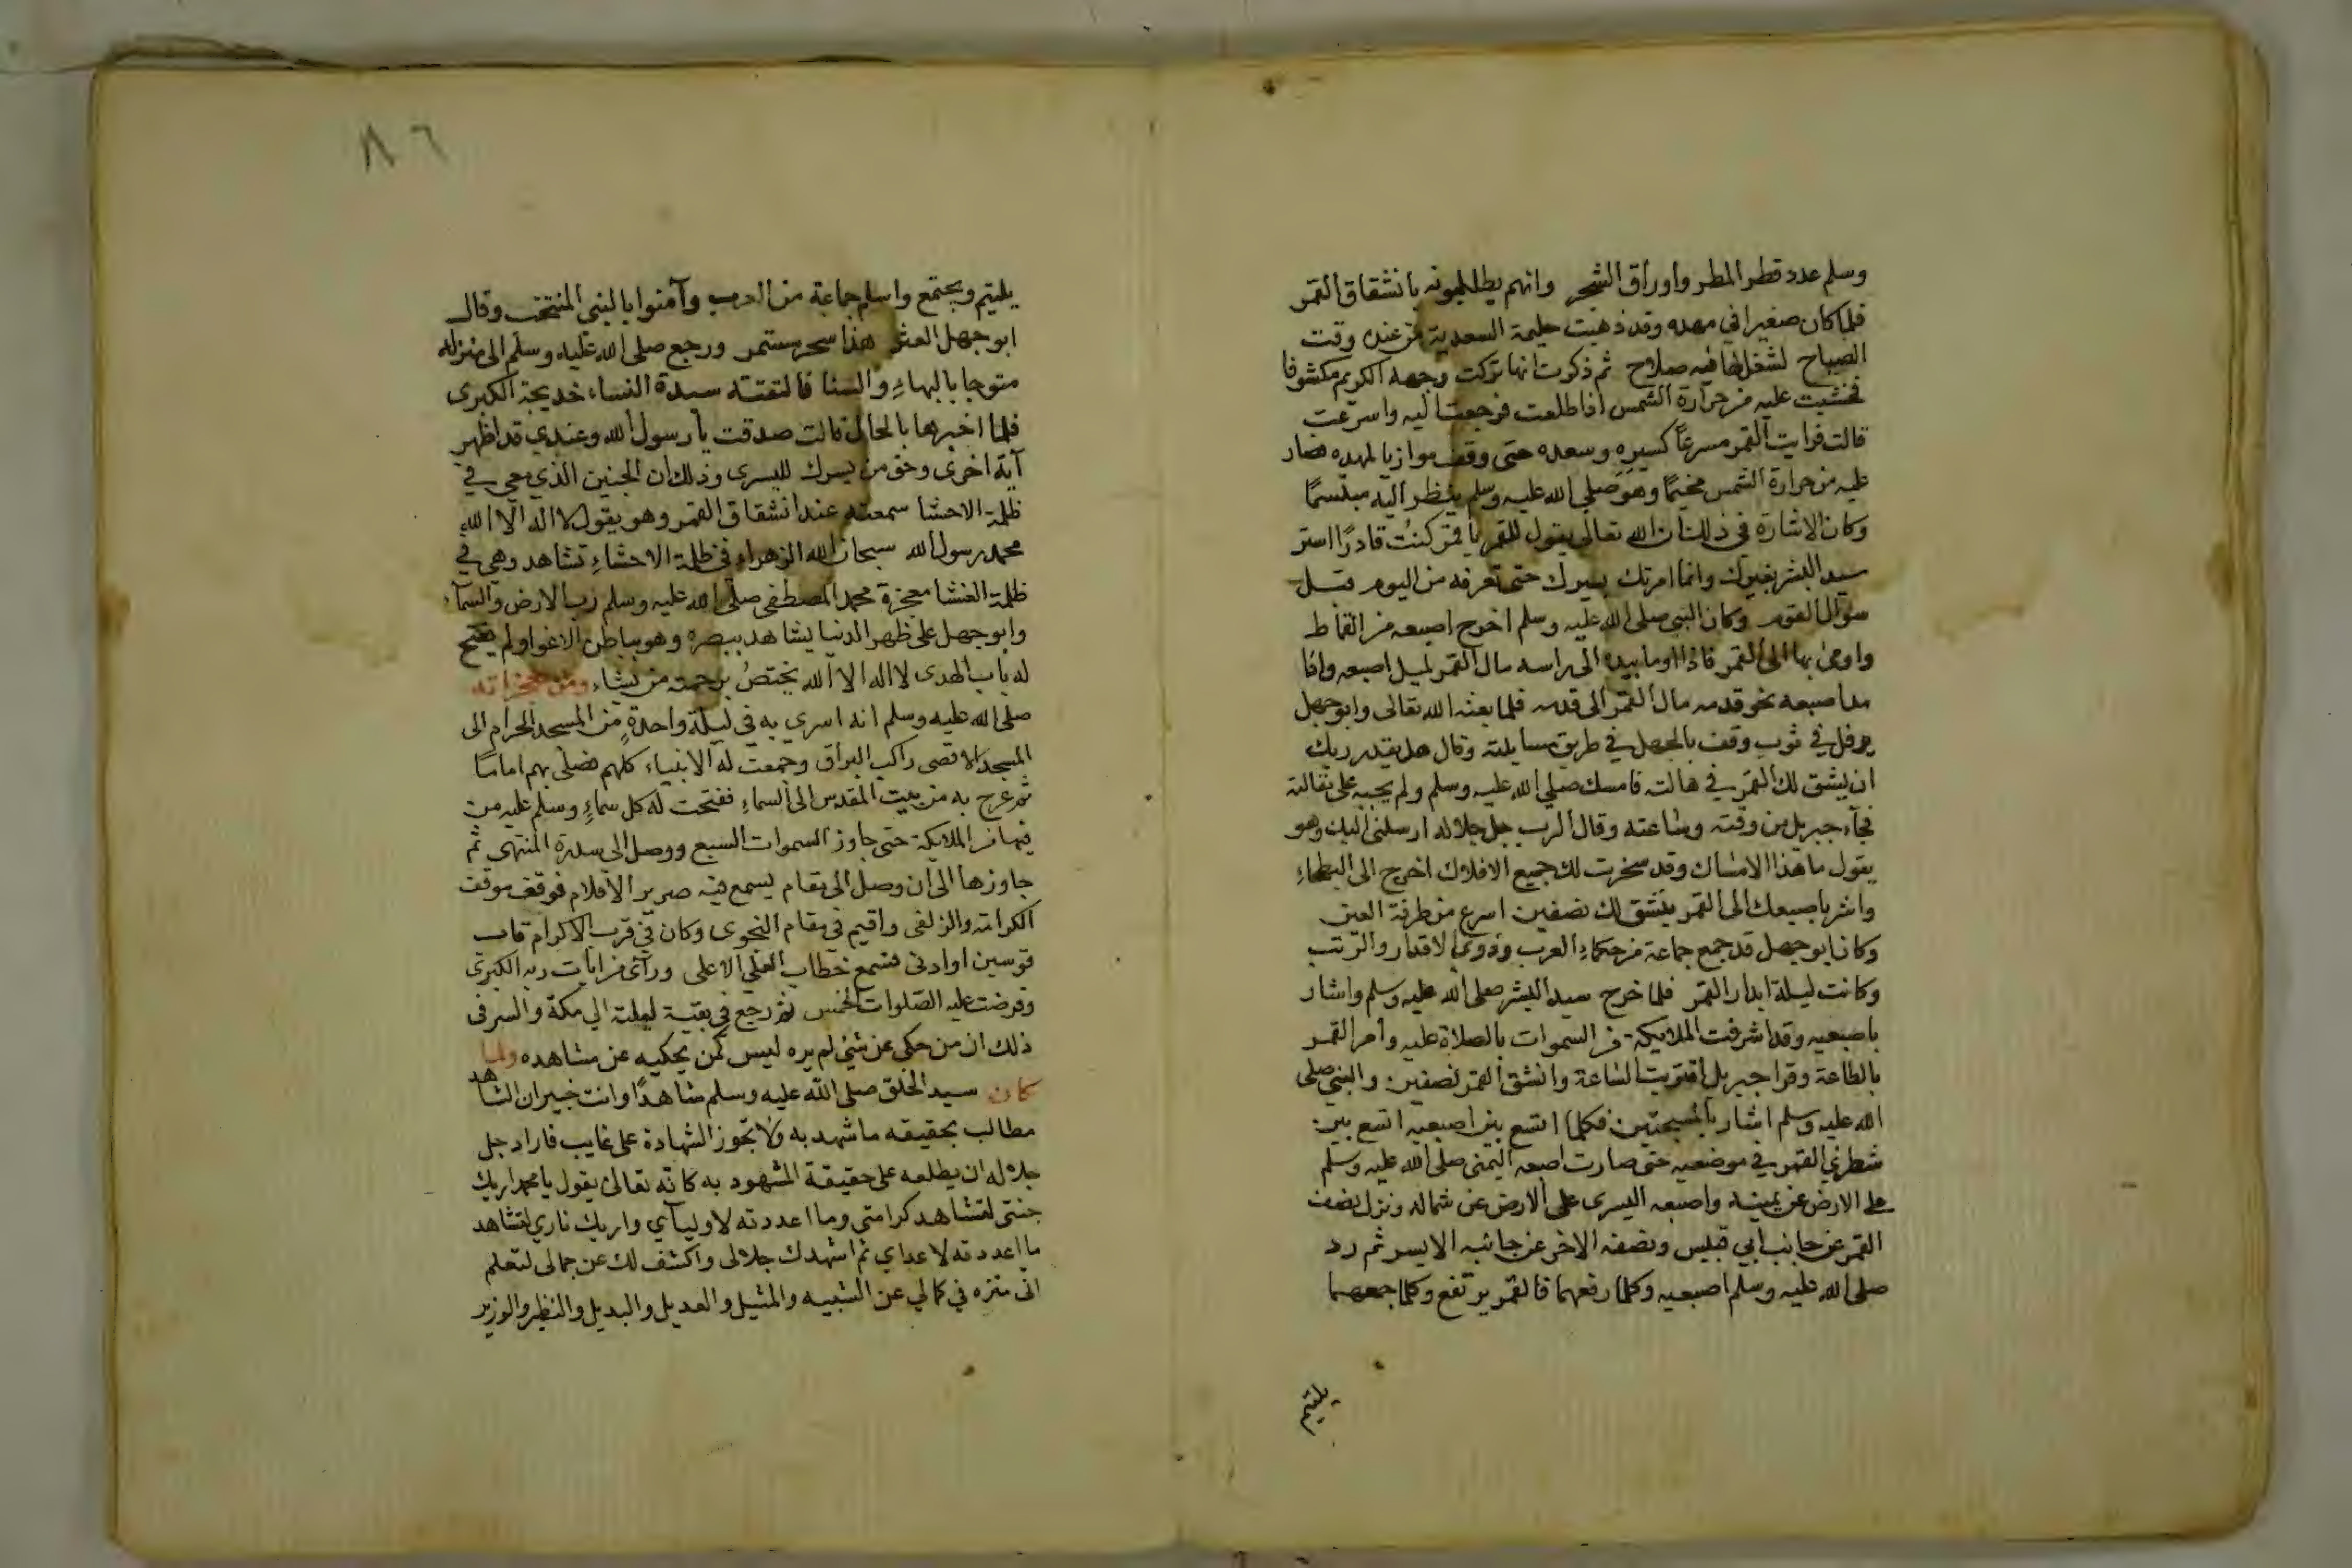 وسلم عدد قطر المطر واوراق الشجر وانهم يطلبونه بانشقاق القمر
فلما كان صغيرا في مهده وقد ذهبت حليمة السعدية من عنده وقت
الصباح لشغل لها فيه صلاح ثم ذكرت انها تركت وجهه الكريم مكشوفا
فخشيت عليه من حرارة الشمس اذا طلعت فرجعت اليه واسرعت
قالت فرايت القمر مسرعًا كسيره وسعده حتى وقف موازيا لمهده فصار
عليه من حرارة الشمس مخيمًا وهو صلى الله عليه وسلم ينظر اليه مبتسمًا
وكان الاشارة في ذلك ان الله تعالى يقول للقمر يا قمر كنت قادرًا استر
سيد البشر بغيرك وانما امرتك بسيرك حتى تعرفه من اليوم قبل
سؤال القوم وكان النبي صلى الله عليه وسلم اخرج اصبعه من القماط
واومى بها الى القمر فاذا اوما بيده الى راسه مال القمر لميل اصبعه واذا
مد اصبعه نحو قدمه مال القمر الى قدمه فلما بعثه الله تعالى وابو جهل
يرفل في ثوب وقف بالجهل في طريق مسايلته وقال هل يقدر ربك
ان يشق لك القمر في هالته فامسك صلى الله عليه وسلم ولم يجبه على مقالته
فجآء جبريل من وقته وساعته وقال الرب جل جلاله ارسلني اليك وهو
يقول ما هذا الامساك وقد سخرت لك جميع الافلاك اخرج الى البطحاءِ
واشر باصبعك الى القمر ينشق لك نصفين اسرع من طرفة العين
وكان ابو جهل قد جمع جماعة من حكماءِ العرب وذوي الاقدار والرتب
وكانت ليلة ابدار القمر فلما خرج سيد البشر صلى الله عليه وسلم واشار
باصبعيه وقد اشرفت الملايكة من السموات بالصلاة عليه وأمر القمر
بالطاعة وقرا جبريل اقتربت الساعة وانشق القمر نصفين والنبي صلى
الله عليه وسلم اشار بالمسبحتين فكلما اتسع بين اصبعيه اتسع بين
شطري القمر في موضعيه حتى صارت اصبعه اليمنى صلى الله عليه وسلم
على الارض عن يمينه واصبعه اليسرى على الارض عن شماله ونزل نصف
القمر عن جانب ابي قبيس ونصفه الاخر عن جانبه الايسر ثم رد
صلى الله عليه وسلم اصبعيه وكلما رفعهما فالقمر يرتفع وكلما جمعهما
يلتيم
٨٦
يلتيم ويجتمع واسلم جماعة من العرب وآمنوا بالنبي المنتخب وقال
ابو جهل هذا سحر مستمر ورجع صلى الله عليه وسلم الى منزله
متوجا بالبهاءِ والسنا فالتقته سيدة النساء خديجة الكبرى
فلما اخبرها بالحال قالت صدقت يا رسول الله وعندي قد اظهر
آية اخرى وحق من يسرك لليسرى وذلك ان الجنين الذي معي في
ظلمة الاحشا سمعته عند انشقاق القمر وهو يقول لا اله الا الله
محمد رسول الله سبحان الله الزهراء في ظلمة الاحشاءِ تشاهد وهي في
ظلمة الغشا معجزة محمد المصطفى صلى الله عليه وسلم رب الارض والسمآء
وابو جهل على ظهر الدنيا يشاهد ببصره وهو بباطن الاغوا ولم يفتح
له باب الهدى لا اله الا الله يختصُ برحمته من يشاء ومن معجزاته
صلى الله عليه وسلم انه اسري به في ليلة واحدةٍ من المسجد الحرام الى
المسجد الاقصى راكب البراق وجمعت له الانبياء كلهم فصلى بهم امامًا
ثم عرج به من بيت المقدس الى السماءِ ففتحت له كل سماءٍ وسلم عليه من
فيها من الملايكة حتى جاوز السموات السبع ووصل الى سدرة المنتهى ثم
جاوزها الى ان وصل الى مقام يسمع فيه صرير الاقلام فوقف موقف
الكرامة والزلفى واقيم في مقام النجوى وكان في قرب الاكرام قاب
قوسين او ادنى فسمع خطاب العلي الاعلى ورآى من ايات ربه الكبرى
وفرضت عليه الصلوات الخمس ثم رجع في بقية ليلته الى مكة والسر في
ذلك ان من حكى عن شيٍ لم يره ليس كمن يحكيه عن مشاهده ولما
كان سيد الخلق صلى الله عليه وسلم شاهدًا وانت خبير ان الشاهد
مطالب بحقيقه ما شهد به ولا تجوز الشهادة على غايب فاراد جل
جلاله ان يطلعه على حقيقة المشهود به كانه تعالى يقول يا محمد اريك
جنتي لتشاهد كرامتي وما اعددته لاوليآي واريك ناري لتشاهد
ما اعددته لاعداي ثم اشهدك جلالى واكشف لك عن جمالى لتعلم
انى منزه في كمالي عن الشبيه والمثيل والعديل والبديل والنظير والوزير